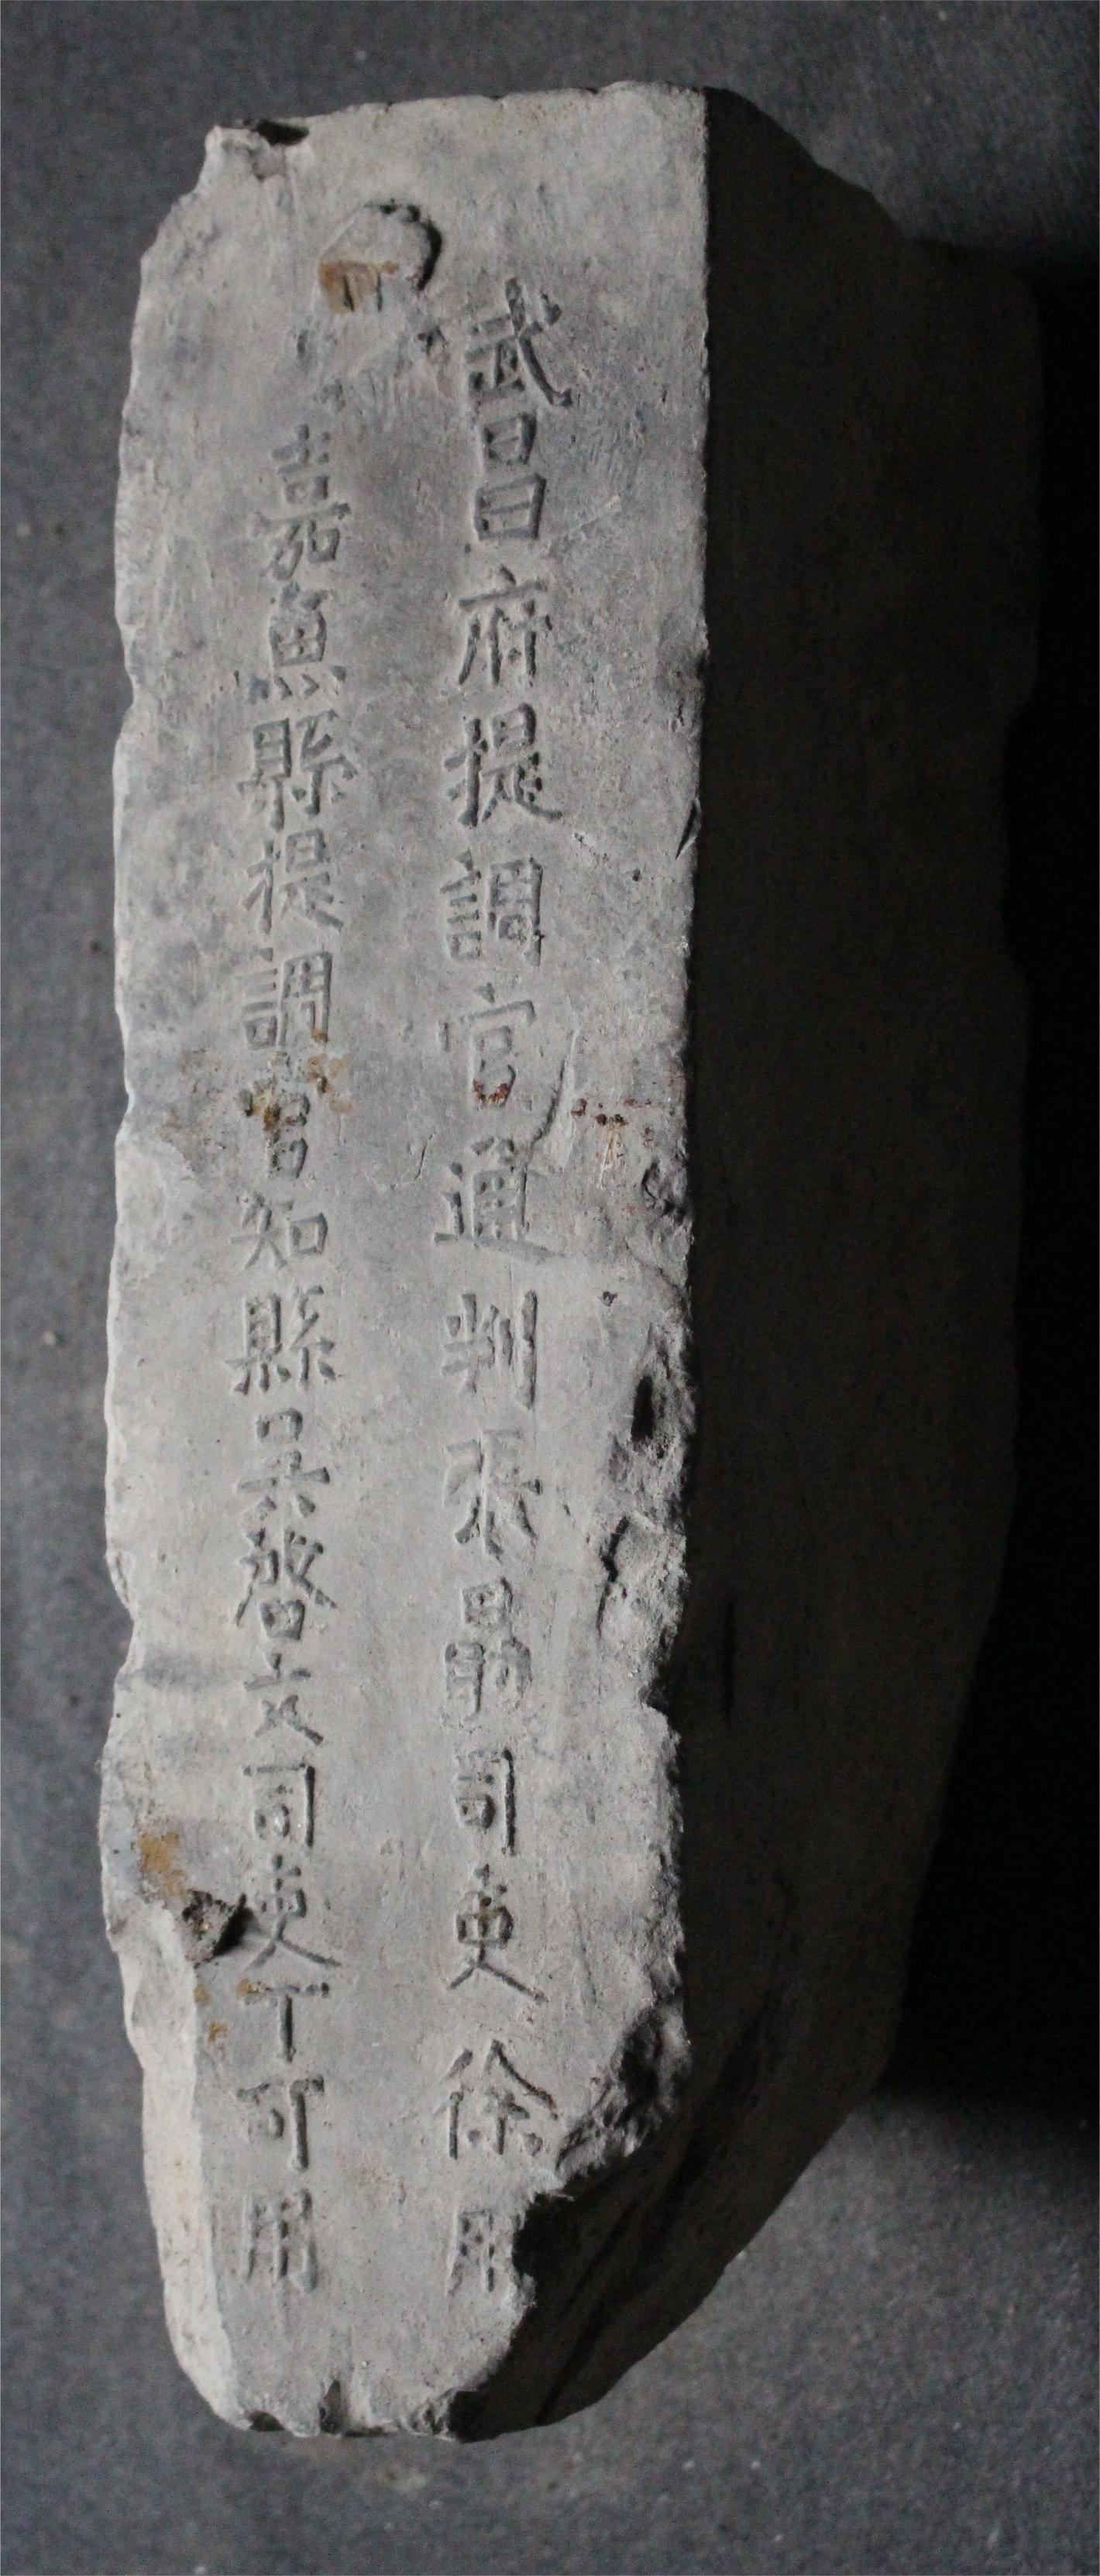 武昌府提調官通判張勗司吏徐
嘉魚縣提調官知縣吴啓文司吏丁可用